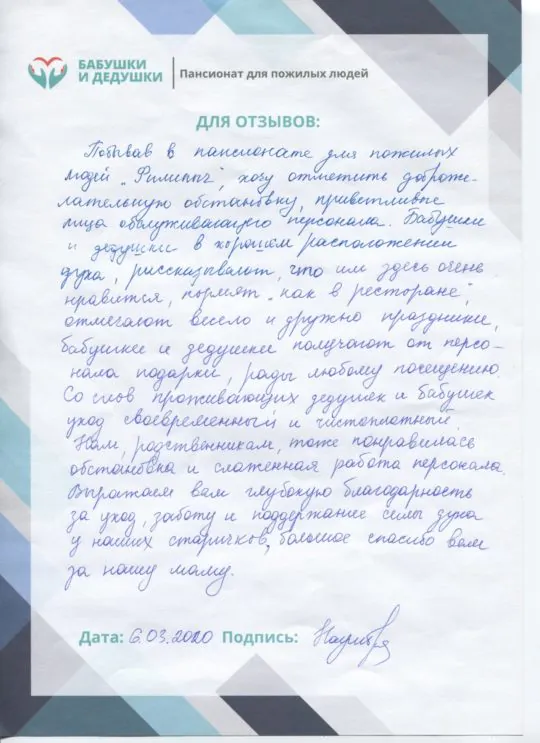 БАБУШКИ
И ДЕДУШКИ
Пансионат для пожилых людей
ДЛЯ ОТЗЫВОВ:
Побывав в пансионате для пожилых
людей „Филипыч", хочу отметить доброже-
лательную обстановку, приветливые
лица обслуживающего персонала. Бабушки
и дедушки в хорошем расположении
духа, рассказывают, что им здесь очень
нравится, кормят „как в ресторане",
отмечают весело и дружно праздники,
бабушки и дедушки получают от персо-
нала подарки, рады любому посещению.
Со слов проживающих дедушек и бабушек
уход своевременный и чистоплотный.
Нам, родственникам, тоже понравилась
обстановка и слаженная работа персонала.
Выражаем вам глубокую благодарность
за уход, заботу и поддержание силы духа
у наших старичков, большое спасибо вам
за нашу маму.
Дата: 6.03.2020 Подпись: